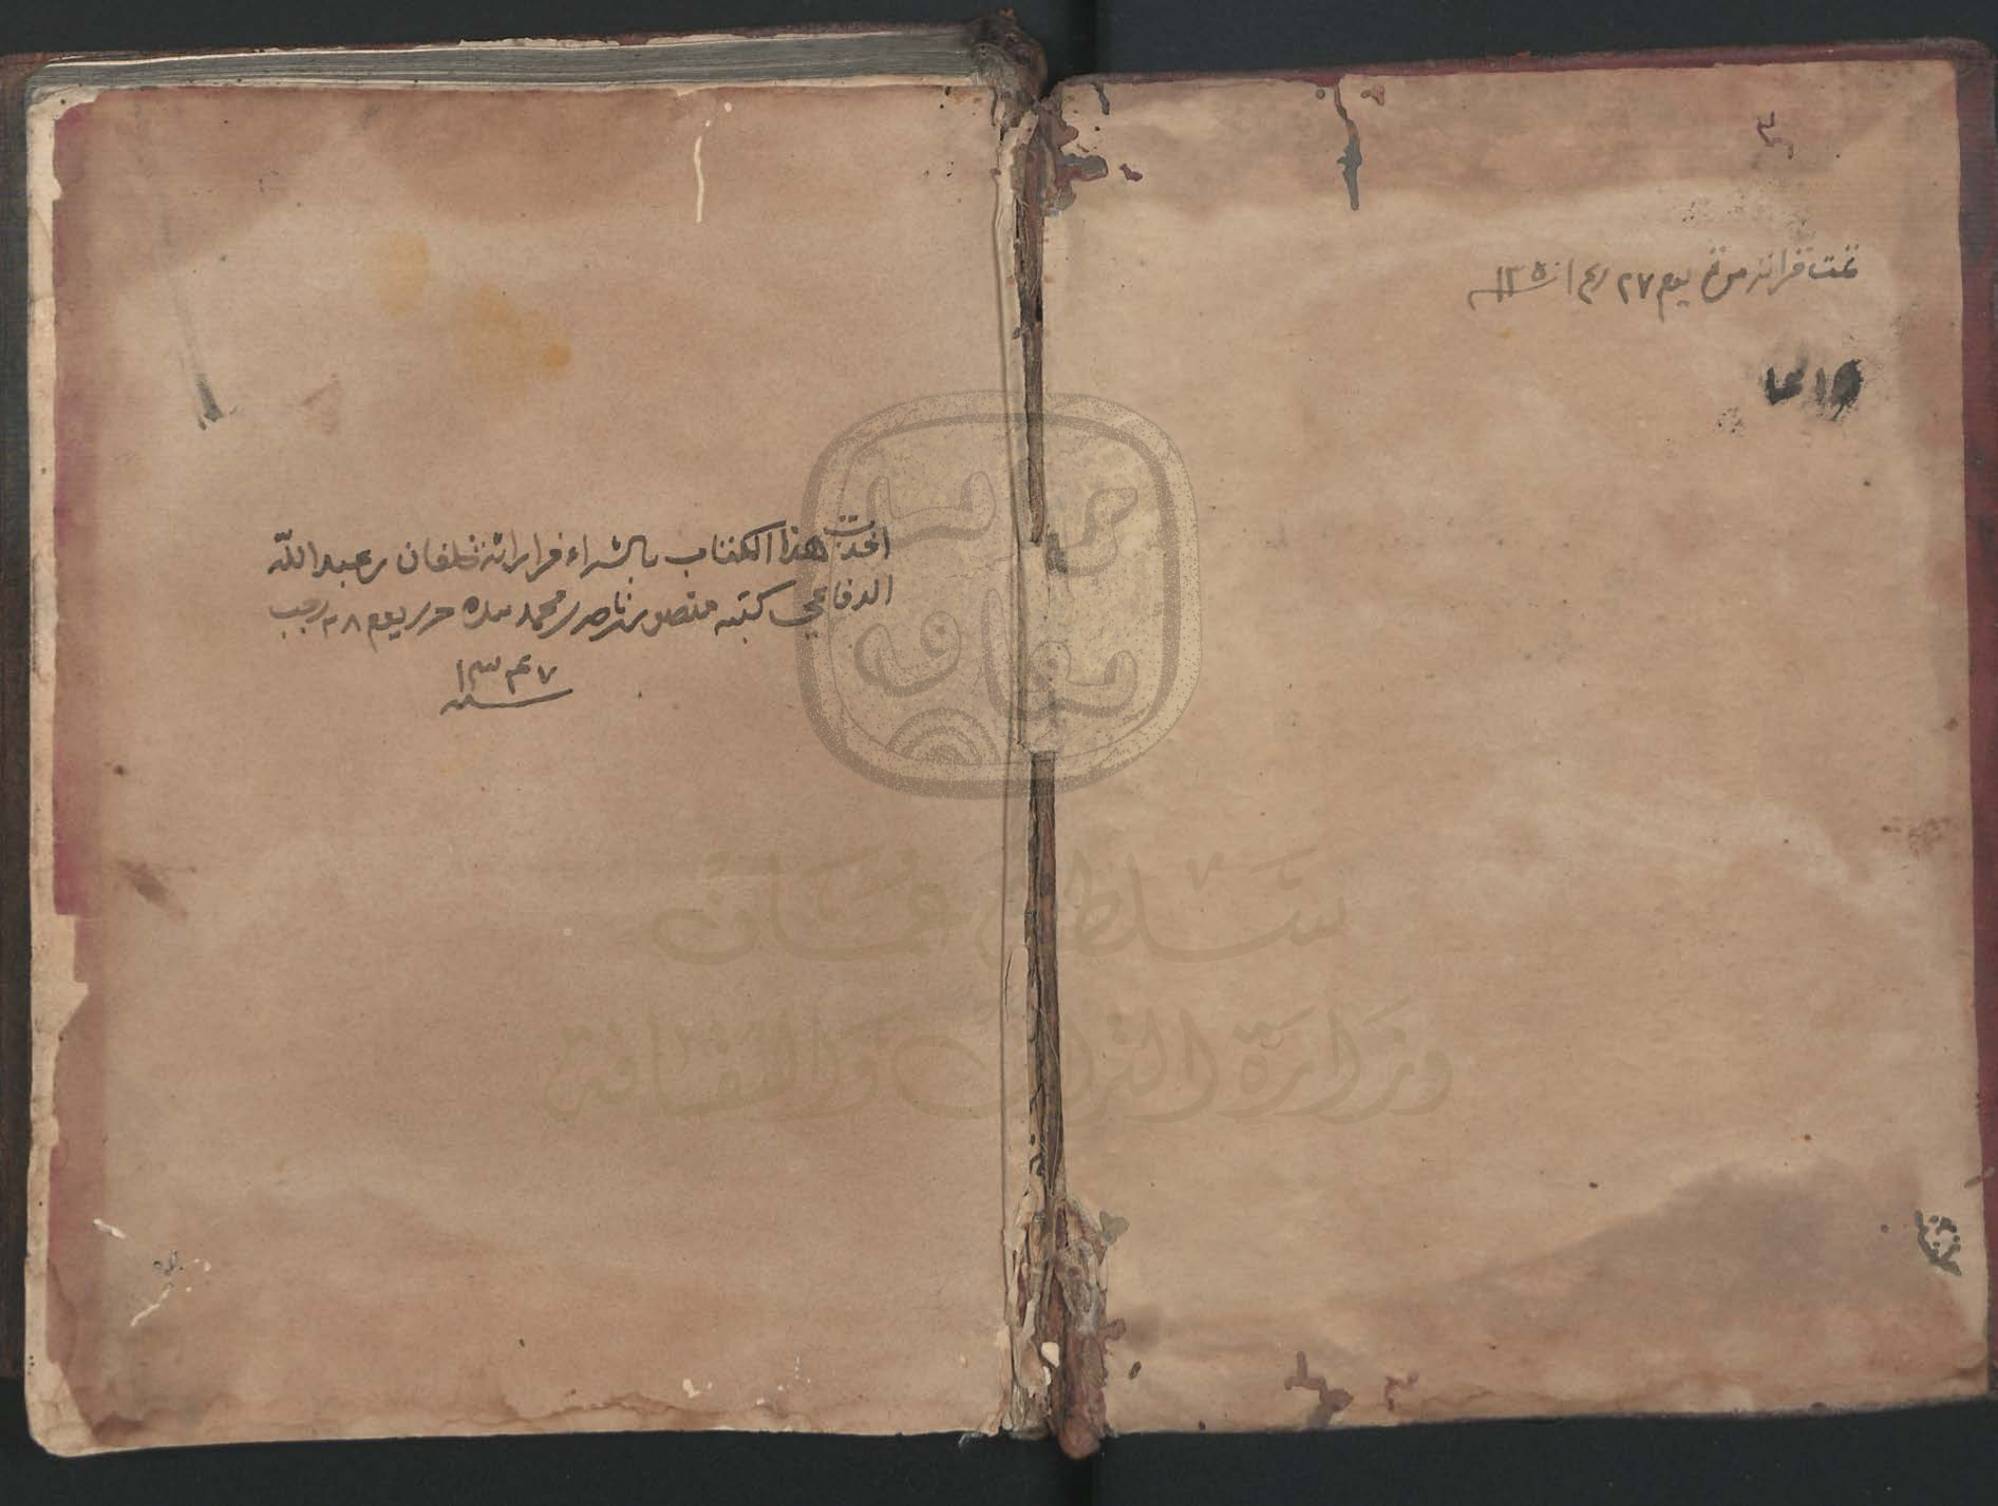 تمت قرائته مرة يوم ٢٧ ربيع ١ سنة ١٣٥٠
اخذت هذا الكتاب بالشراء من اراثة خلفان بن عبدالله
كتبه منصور بن ناصر بن محمد بيده حرر يوم ٢٨ رجب
سنة ١٣٤٧
سلطنة عمان
وزارة التراث والثقافة